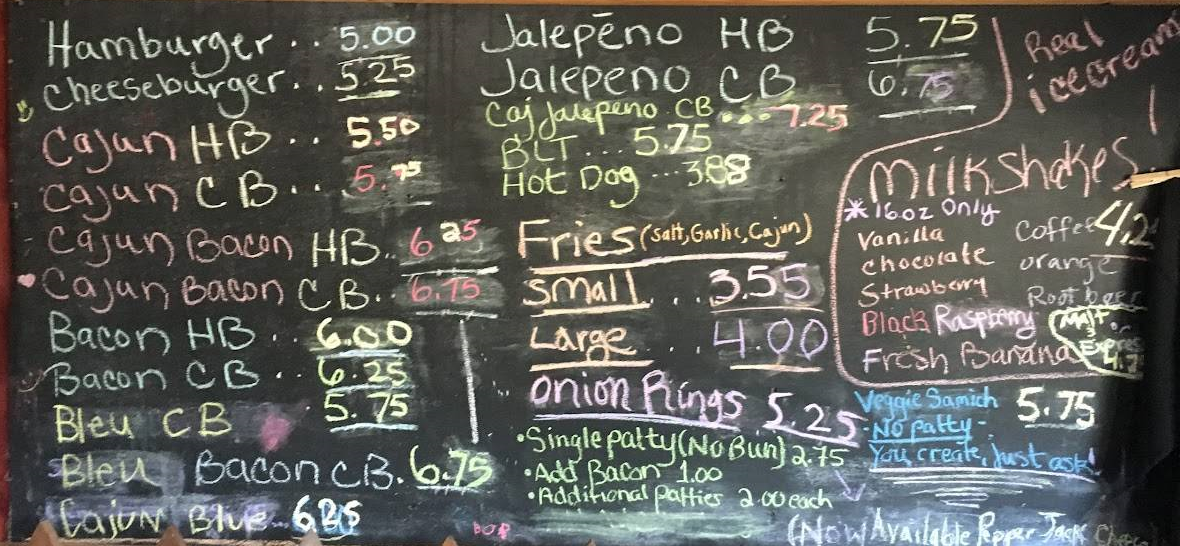 Hamburger .. 5.00
Cheeseburger .. 5.25
Cajun HB .. 5.50
Cajun CB .. 5.75
Cajun Bacon HB .. 6.25
Cajun Bacon CB .. 6.75
Bacon HB . 6.00
Bacon CB .. 6.25
Bleu CB 5.75
Bleu Bacon CB. 6.75
Cajun Blue ..
Jalepēno HB 5.75
Jalepeno CB 6.75
Caj Jalepeno CB ... 7.25
BLT ... 5.75
Hot Dog ...
Fries (Salt, Garlic, Cajun)
Small ... 3.55
Large .. 4.00
Onion Rings 5.25
•Single patty (No Bun) 2.75
•Add Bacon 1.00
•Additional patties 2.00 each
Real
ice cream
!
Milkshakes
*16oz Only
Vanilla
Chocolate
Strawberry
Black Raspberry
Fresh Banana
Coffee
Orange
Root beer
Malt
Veggie Samich 5.75
-No patty-
You create, Just ask!
(Now Available Pepper Jack Cheese